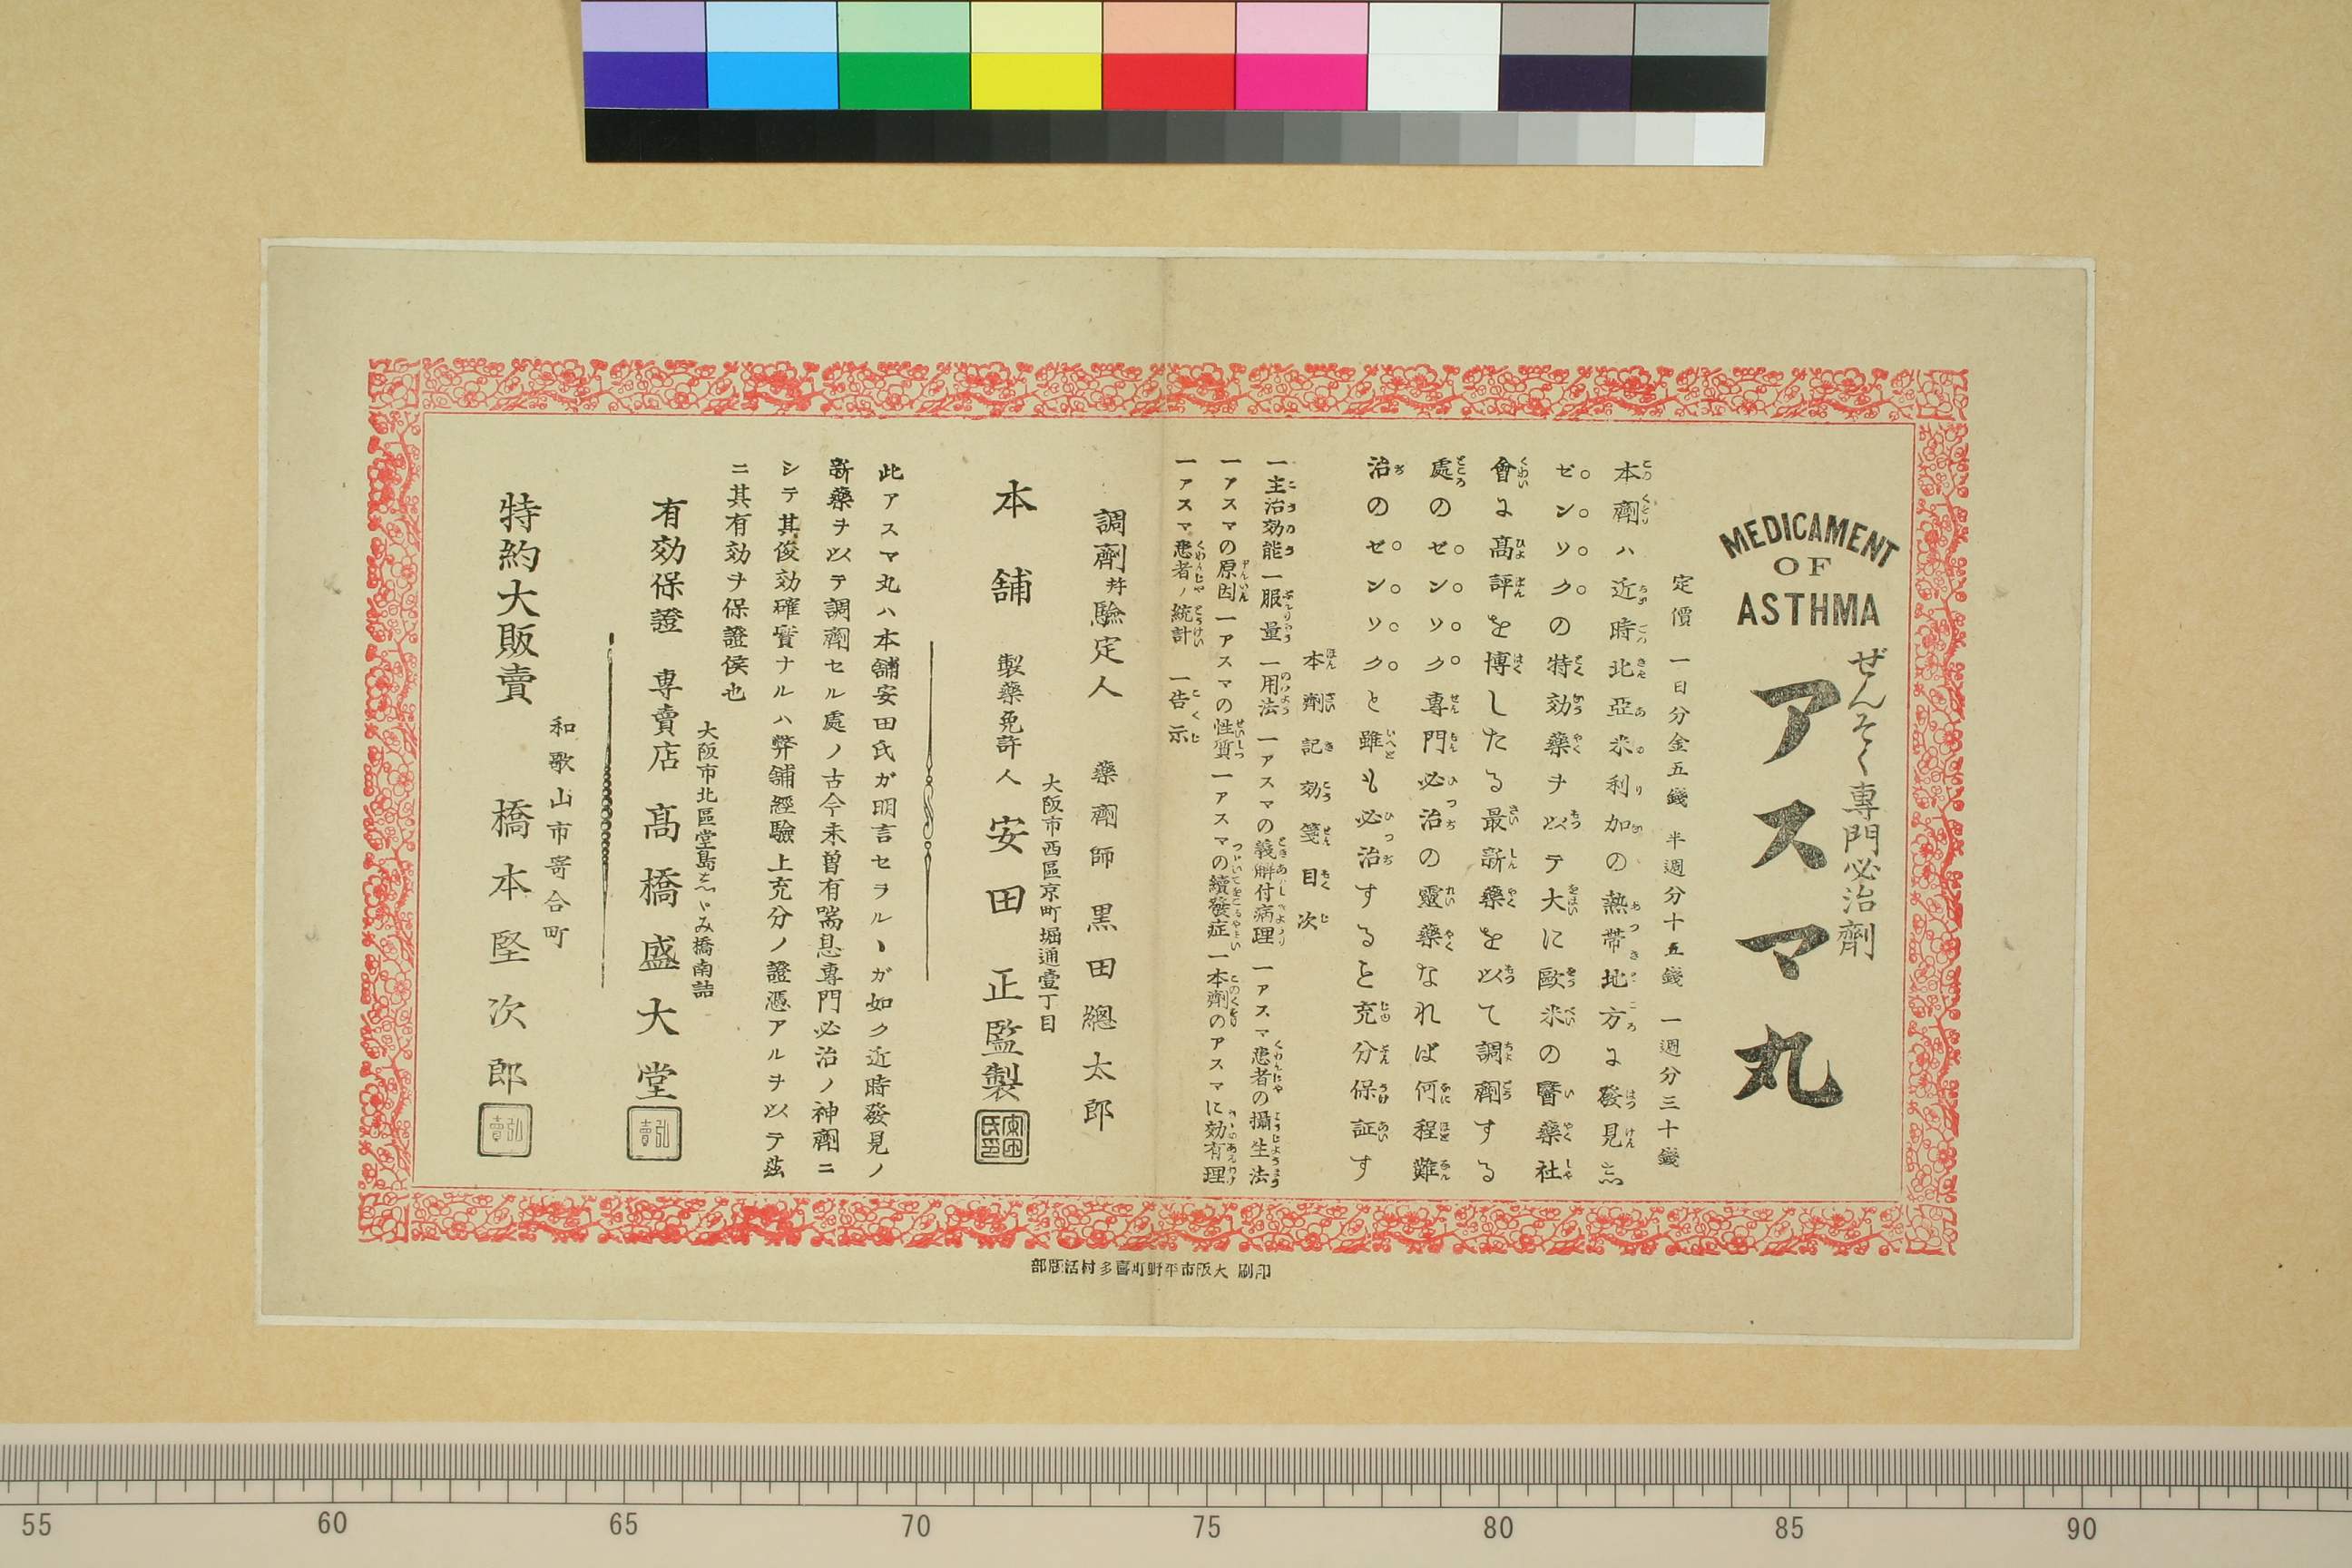 MEDICAMENT
OF
ASTHMA
ぜんそく專門必治劑
アスマ丸
定價 一日分金五錢 半週分十五錢 一週分三十錢
本劑ハ近時北亞米利加の熱帶地方よ發見し
ゼンソクの特効藥ヲ以テ大に歐米の醫藥社
會よ高評を博したる最新藥を以て調劑する
處のゼンソク專門必治の靈藥なれば何程難
治のゼンソクと雖も必治すると充分保証す
本劑記効箋目次
一主治効能 一服量 一用法 一アスマの義解付病理 一アスマ患者の攝生法
一アスマの原因 一アスマの性質 一アスマの續發症 一本劑のアスマに効有理
一アスマ患者ノ統計 一告示
調劑幷驗定人 藥劑師 黒田總太郎
大阪市西區京町堀通壹丁目
本舖 製藥免許人 安田正監製
此アスマ丸ハ本舖安田氏ガ明言セヲルヽガ如ク近時發見ノ
新藥ヲ以テ調劑セル處ノ古今未曽有喘息專門必治ノ神劑ニ
シテ其俊効確實ナルハ弊舖經驗上充分ノ證憑アルヲ以テ茲
ニ其有効ヲ保證侯也
大阪市北區堂島志ゞみ橋南詰
有効保證 専賣店 髙橋盛大堂
弘賣
和歌山市寄合町
特約大販賣 橋本堅次郎
弘賣
印刷 大阪市平野町喜多村活版部
55 60 65 70 75 80 85 90